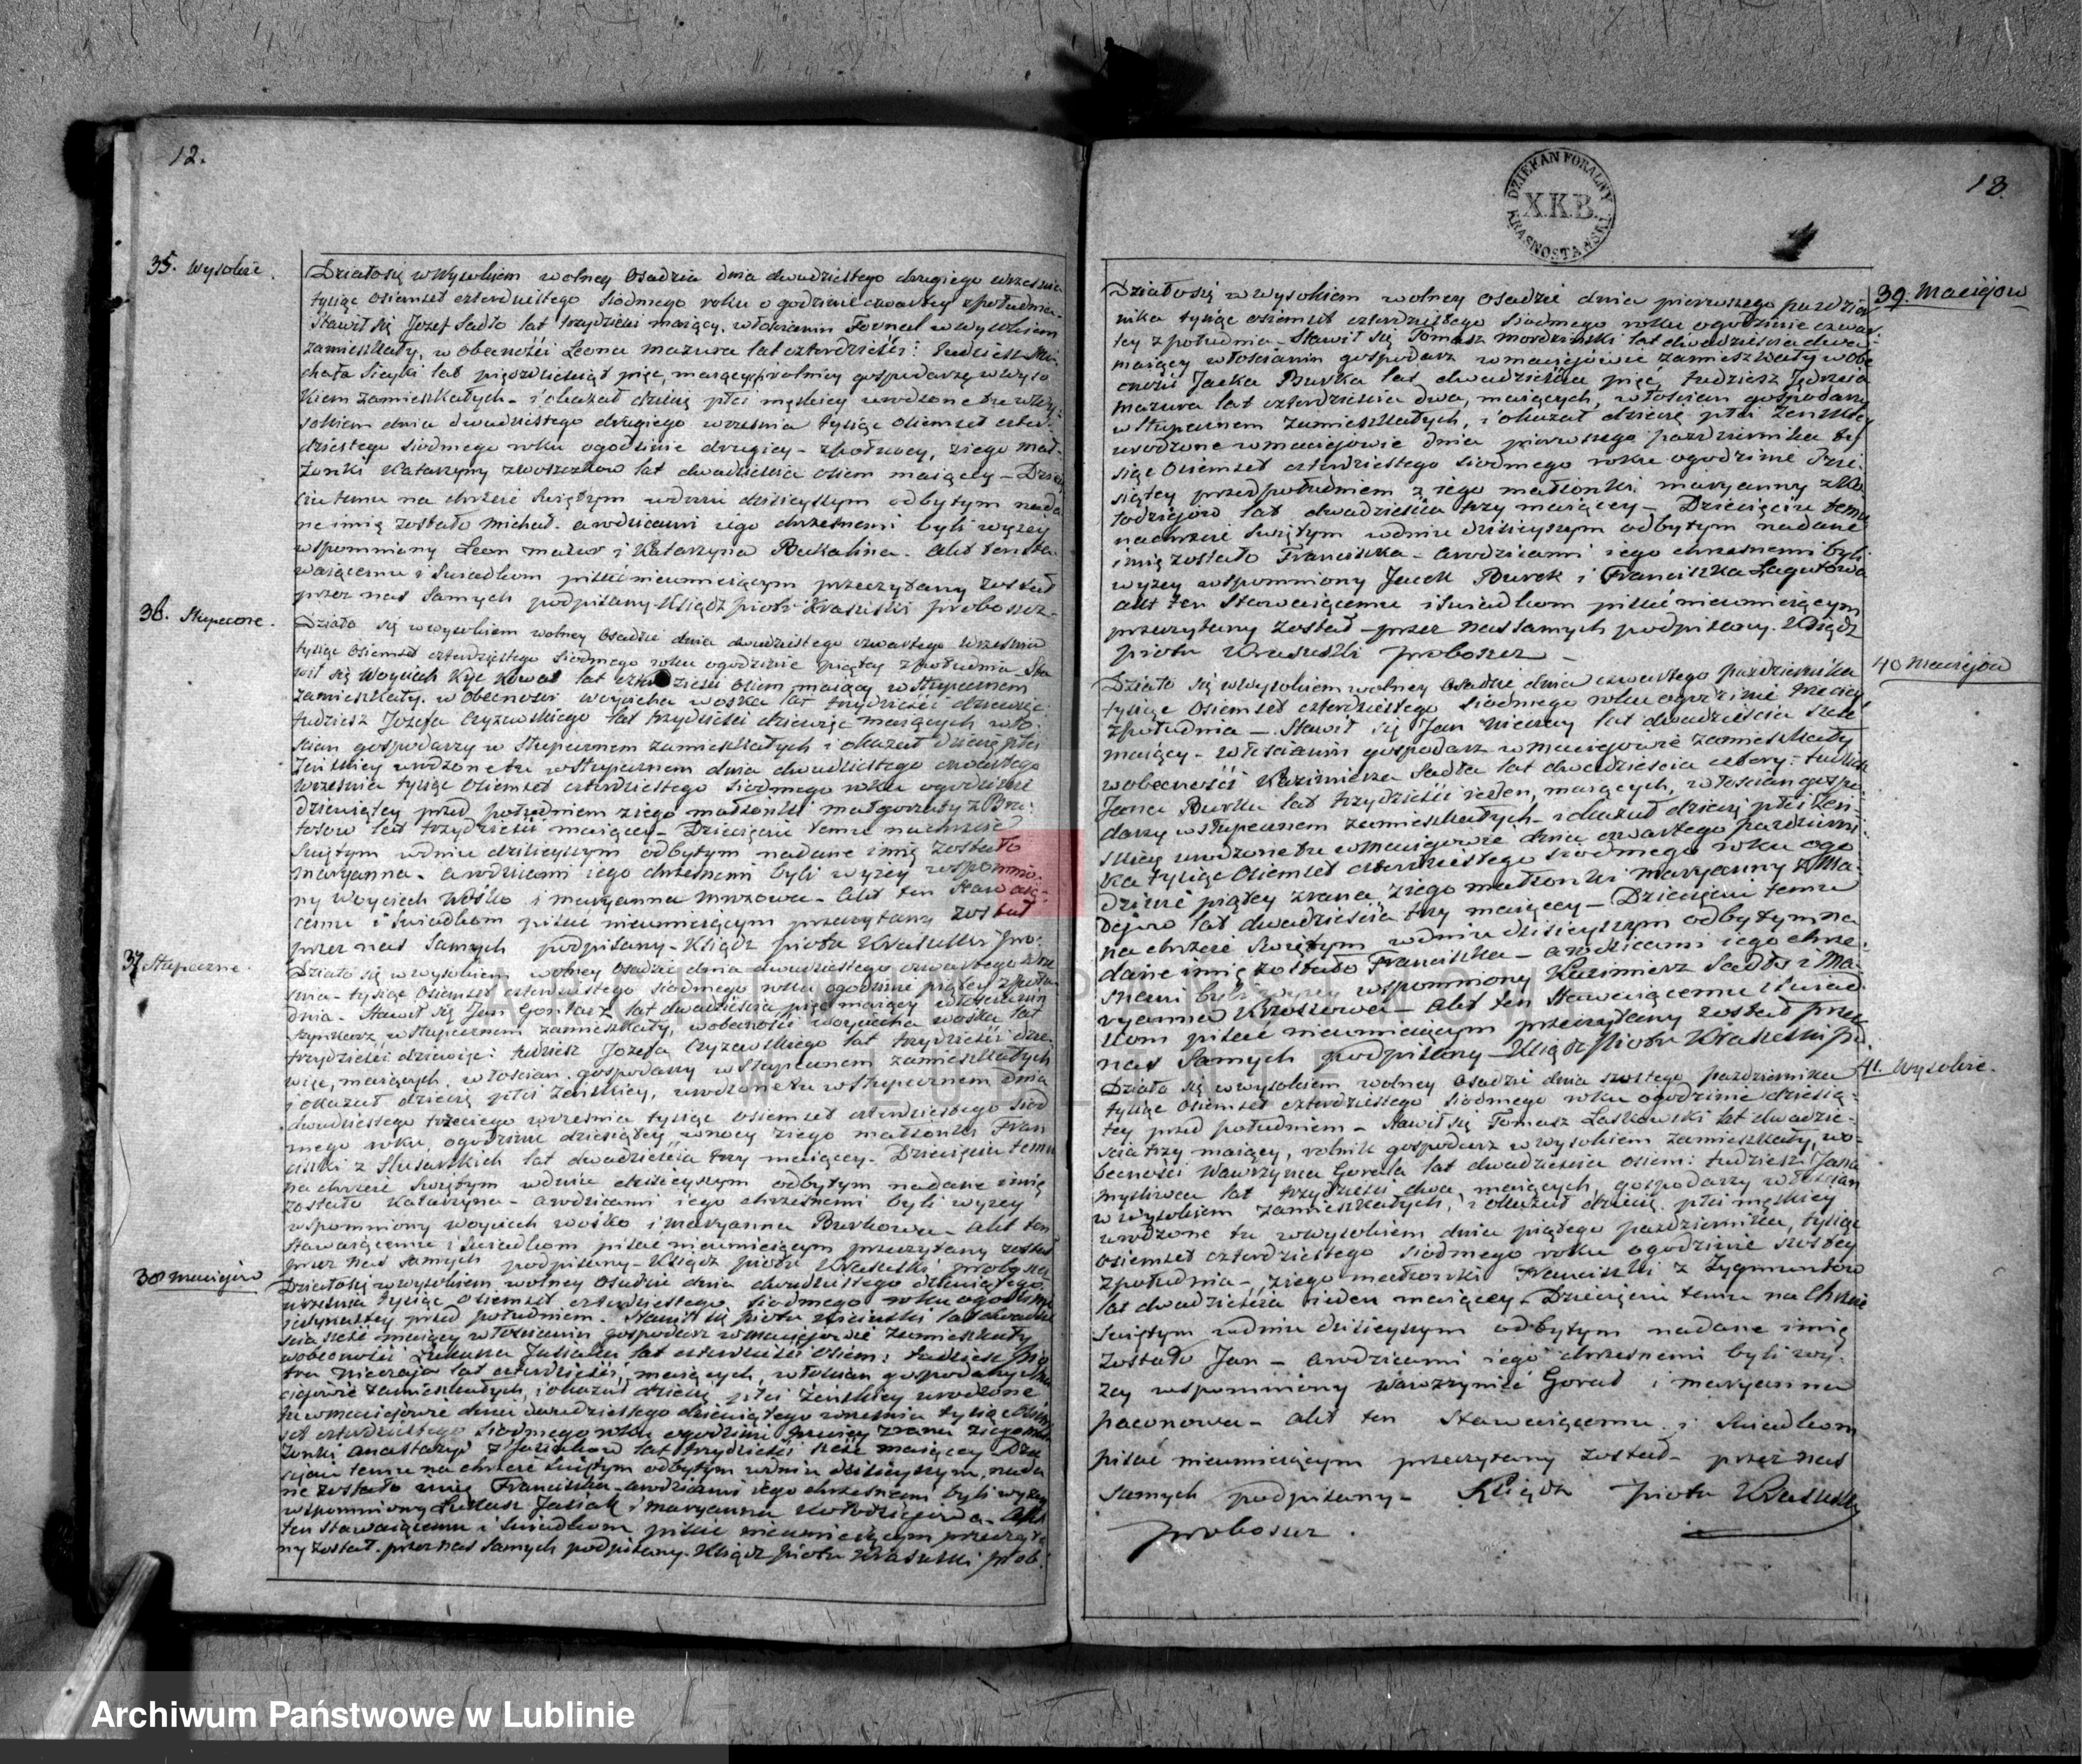 12.
35. Wysokie.
Działosię w Wysokiem wolney Osadzie dnia dwudziestego drugiego września
tysiąc osiemset czterdziestego siodmego roku o godzinie czwartey zpołudnia.
Stawił się Jozef Sadło lat trzydzieści maiący, włościanin w wysokiem
zamieszkały, w obecności Leona Mazura lat czterdzieści: tudziesz Mi-
chała lat pięcdziesiąt pięc, maiących rolnicy gospodarze w wyso
kiem zamieszkałych - i okazał dziecię płci męskiey urodzone tu w Wy-
sokiem dnia dwudziestego drugiego września tysiąc osiemset czter-
dziestego siodmego roku ogodzinie drugiey - zpołnocy, ziego mał-
żonki Katarzyny lat dwadzieścia osiem maiącey - Dzie
cięciu temu na chrzcie świętym wdniu dzisieyszym odbytym nada
ne imię zostało Michał. a rodzicami iego chrzesnemi byli wyżey
wspomniony Leon Mazur i Katarzyna - Akt ten sta-
waiącemu i świadkom pisać nieumieiącym przeczytany został
przez nas samych podpisany Ksiądz Piotr Krasuski proboszcz
36. Stupeczne.
Działo się w wysokiem wolney Osadzie dnia dwudziestego czwartego września
tysiąc osiemset czterdziestego siodmego roku ogodzinie piątey zpołudnia - Sta
wił się Woyciech Kyc lat osiem maiący w Stupecznem
zamieszkały, w obecności Woyciecha Woska lat trzydzieści dziewięć:
tudziesz Jozefa Czyzewskiego lat trzydzieści dziewięc maiących wło-
scian gospodarzy w Stupecznem zamieszkałych i okazał dziecię płci
żeńskiey urodzone tu w Stupecznem dnia dwudziestego czwartego
września tysiąc osiemset czterdziestego siodmego roku ogodzinie
dziesiątey przed południem ziego małżonki Małgorzaty z
lat trzydzieści maiącey - Dziecięciu temu na chrzcie
świętym wdniu dzisieyszym odbytym nadane imię zostało
Maryanna - a rodzicami iego chrzesnemi byli wyżey wspomnio-
ny Woyciech Wośko i Maryanna Mrozowa - Akt ten stawaią-
cemu i świadkom pisać nieumieiącym przeczytany został
przez nas samych podpisany - Ksiądz Piotr Krasuski pro:
37 Stupeczne.
Działo się w wysokiem wolney Osadzie dnia dwudziestego czwartego wrze
śnia - tysiąc osiemset czterdziestego siodmego roku ogodzinie piątey zpołu
dnia - Stawił się Jan Gontarz lat dwadzieścia pięc maiący włościanin
w Stupecznem zamieszkały, wobecności Woyciecha Woska lat
trzydzieści dziewięc: tudziesz Jozefa Czyzewskiego lat trzydzieści dzie-
więc, maiących, włoscian gospodarzy w Stupecznem zamieszkałych
i okazał dziecię płci żeńskiey, urodzone tu w Stupecznem dnia
dwudziestego trzeciego września tysiąc osiemset czterdziestego siod
mego roku, ogodzinie dziesiątey wnocy ziego małżonki Fran
ciszki z Slusarskich lat dwadzieścia trzy maiącey - Dziecięciu temu
na chrzcie świętym wdniu dzisieyszym odbytym nadane imię
zostało Katarzyna - a rodzicami iego chrzesnemi byli wyżey
wspomniony Woyciech Wośko i Maryanna Burkowa - Akt ten
stawaiącemu i świadkom pisać nieumieiącym przeczytany został
przez nas samych podpisany - Ksiądz Piotr Krasuski
38 Maciejow
Działosię w wysokiem wolney Osadzie dnia dwudziestego dziewiątego
września tysiąc osiemset czterdziestego siodmego roku ogodzinie
przed południem. Stawił się Piotr lat dwadzie
ścia sześć maiący włościanin gospodarz w Maciejowie zamieszkały
wobecności Łukasza Jasiaka lat czterdzieści osiem: tudziesz Pio
tra Nieczaja lat czterdzieści, maiących, włościan gospodarzy
zamieszkałych, i okazał dziecię płci żeńskiey urodzone
tu w Maciejowie dnia dwudziestego dziewiątego września tysiąc
set czterdziestego siodmego roku ogodzinie zrana ziego mał
żonki Anastazyi lat trzydzieści sześć maiącey - Dzie
cięciu temu na chrzcie świętym odbytym wdniu dzisieyszym, nada
ne zostało imię Franciszka - a rodzicami iego chrzesnemi byli wyżey
wspomniony Łukasz Jasiak i Maryanna Kołodziejowa - Akt
ten stawaiącemu i świadkom pisać nieumieiącym przeczyta
ny został - przez nas samych podpisany - Ksiądz Piotr Krasuski prob:
DZIEKAN FORALNY
X.K.B.
KRASNOSTAWSKI
13.
39. Maciejow
Działosię w wysokiem wolney Osadzie dnia pierwszego pazdzier
nika tysiąc osiemset czterdziestego siodmego roku ogodzinie czwar
tey zpołudnia - Stawił się Tomasz lat dwadzieścia dwa
maiący włościanin gospodarz w Maciejowie zamieszkały wobe
cności Jacka Burka lat dwadzieścia pięć, tudziesz Jędrzeia
Mazura lat czterdzieścia dwa, maiących, włościan gospodarzy
w Stupecznem zamieszkałych, i okazał dziecię płci żeńskiey
urodzone w Maciejowie dnia pierwszego pazdziernika ty
siąc osiemset czterdziestego siodmego roku ogodzinie dzie
siątey przedpołudniem z iego małżonki Maryanny z Ko
łodziejow lat dwadzieścia trzy maiącey - Dziecięciu temu
nachrzcie świętym wdniu dzisieyszym odbytym nadane
imię zostało Franciszka - a rodzicami iego chrzesnemi byli
wyżey wspomniony Jacek Burek i Franciszka Łagutowa
akt ten Stawaiącemu i świadkom pisać nieumieiącym
przeczytany został - przez nas samych podpisany. Ksiądz
Piotr Krasuski proboszcz -
40 Maciejow
Działo się w wysokiem wolney Osadzie, dnia czwartego pazdziernika
tysiąc osiemset czterdziestego siodmego roku ogodzinie trzeciey
zpołudnia - Stawił się Jan Nieczay lat dwadzieścia sześć
maiący - włościanin gospodarz w Maciejowie zamieszkały
wobecności Kazimierza Sadła lat dwadzieścia cztery: tudziesz
Jana Burka lat trzydzieści ieden, maiących, włościan gospo-
darzy w Stupecznem zamieszkałych - i okazał dziecię płci żeń-
skiey urodzone tu w Maciejowie dnia czwartego pazdzierni-
ka tysiąc osiemset czterdziestego siodmego roku ogo
dzinie piątey zrana, ziego małżonki Maryanny z Ma-
lat dwadzieścia trzy maiącey - Dziecięciu temu
na chrzcie świętym wdniu dzisieyszym odbytym na
dane imię zostało Franciszka - a rodzicami iego chrze-
snemi byli wyżey wspomniony Kazimierz Sadło i Ma-
ryanna - Akt ten stawaiącemu i świad-
kom pisać nieumieiącym przeczytany został przez
nas samych podpisany - Ksiądz Piotr Krasuski
41. Wysokie.
Działo się w wysokiem wolney Osadzie dnia szostego pazdziernika
tysiąc osiemset czterdziestego siodmego roku ogodzinie dziesią-
tey przed południem - Stawił się Tomasz Laskowski lat dwadzie-
ścia trzy maiący, rolnik gospodarz w wysokiem zamieszkały, wo-
becności Wawrzynca Gorala lat dwadzieścia osiem: tudziesz Jana
Mysliwca lat trzydzieści dwa, maiących, gospodarzy włoscian
w wysokiem zamieszkałych, i okazał dziecię płci męskiey
urodzone tu w wysokiem dnia piątego pazdziernika, tysiąc
osiemset czterdziestego siodmego roku ogodzinie szostey
zpołudnia - ziego małżonki Franciszki z Zygmuntow
lat dwadzieścia ieden maiącey - Dziecięciu temu na chrzcie
świętym wdniu dzisieyszym odbytym nadane imię
zostało Jan - a rodzicami iego chrzesnemi byli wy-
żey wspomniony Wawrzyniec Goral i Maryanna
Paconowa - akt ten Stawaiącemu i świadkom
pisać nieumieiącym przeczytany został - przez nas
samych podpisany - Ksiądz Piotr Krasuski
proboszcz.
ARCHIWUM PAŃSTWOWE
W LUBLINIE
Archiwum Państwowe w Lublinie